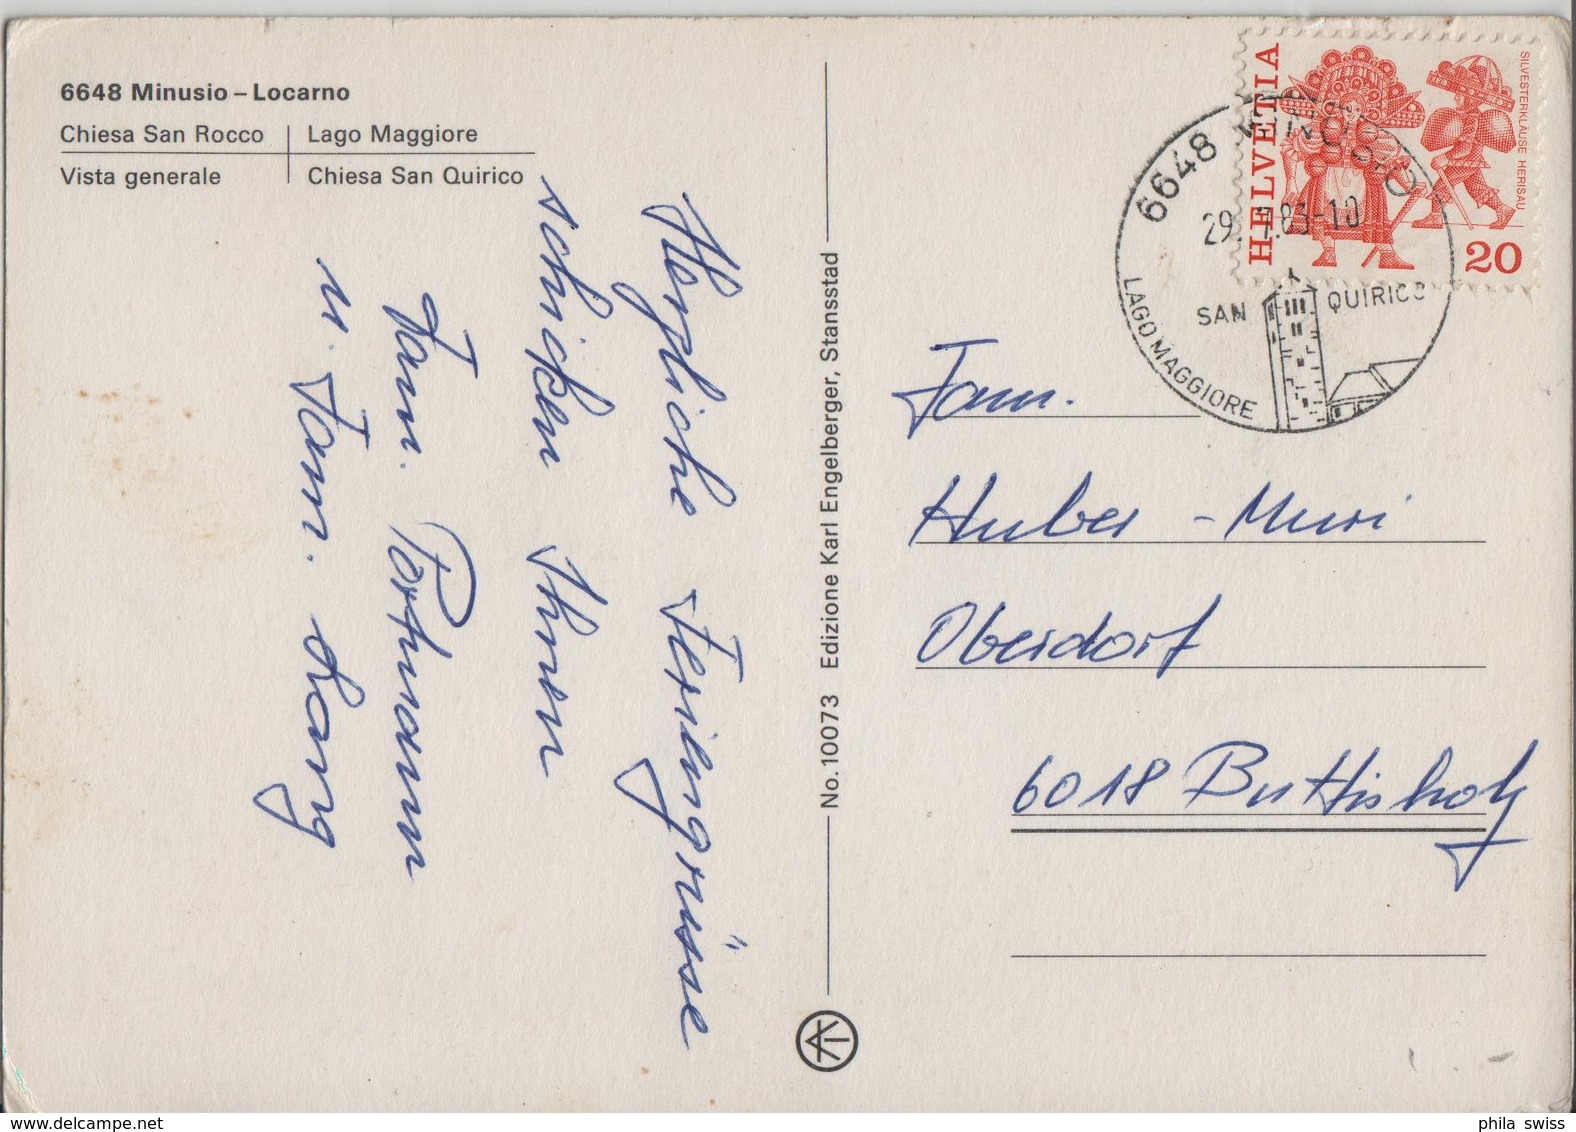 6648 Minusio – Locarno
Chiesa San Rocco | Lago Maggiore
Vista generale | Chiesa San Quirico
Herzliche Feriengrüsse
schicken Ihnen
Fam. Portmann
u. Fam. Lang
No. 10073 Edizione Karl Engelberger, Stansstad
HELVETIA
SILVESTERKLÄUSE HERISAU
20
6648 MINUSIO
29. 7.83-10
SAN QUIRICO
LAGO MAGGIORE
Fam.
Huber - Muri
Oberdorf
6018 Buttisholz
phila swiss